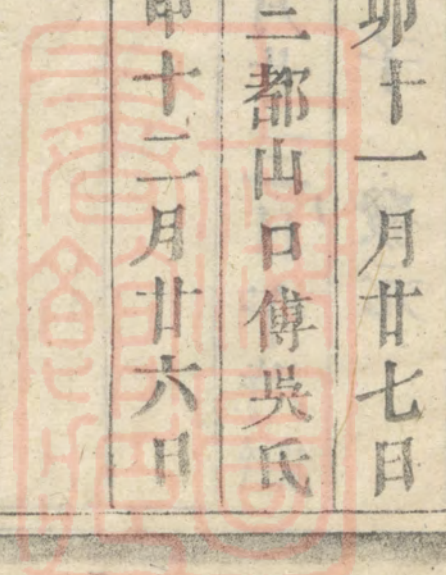 卯十一月廿七日
二都山口傅吳氏
申十二月廿六日